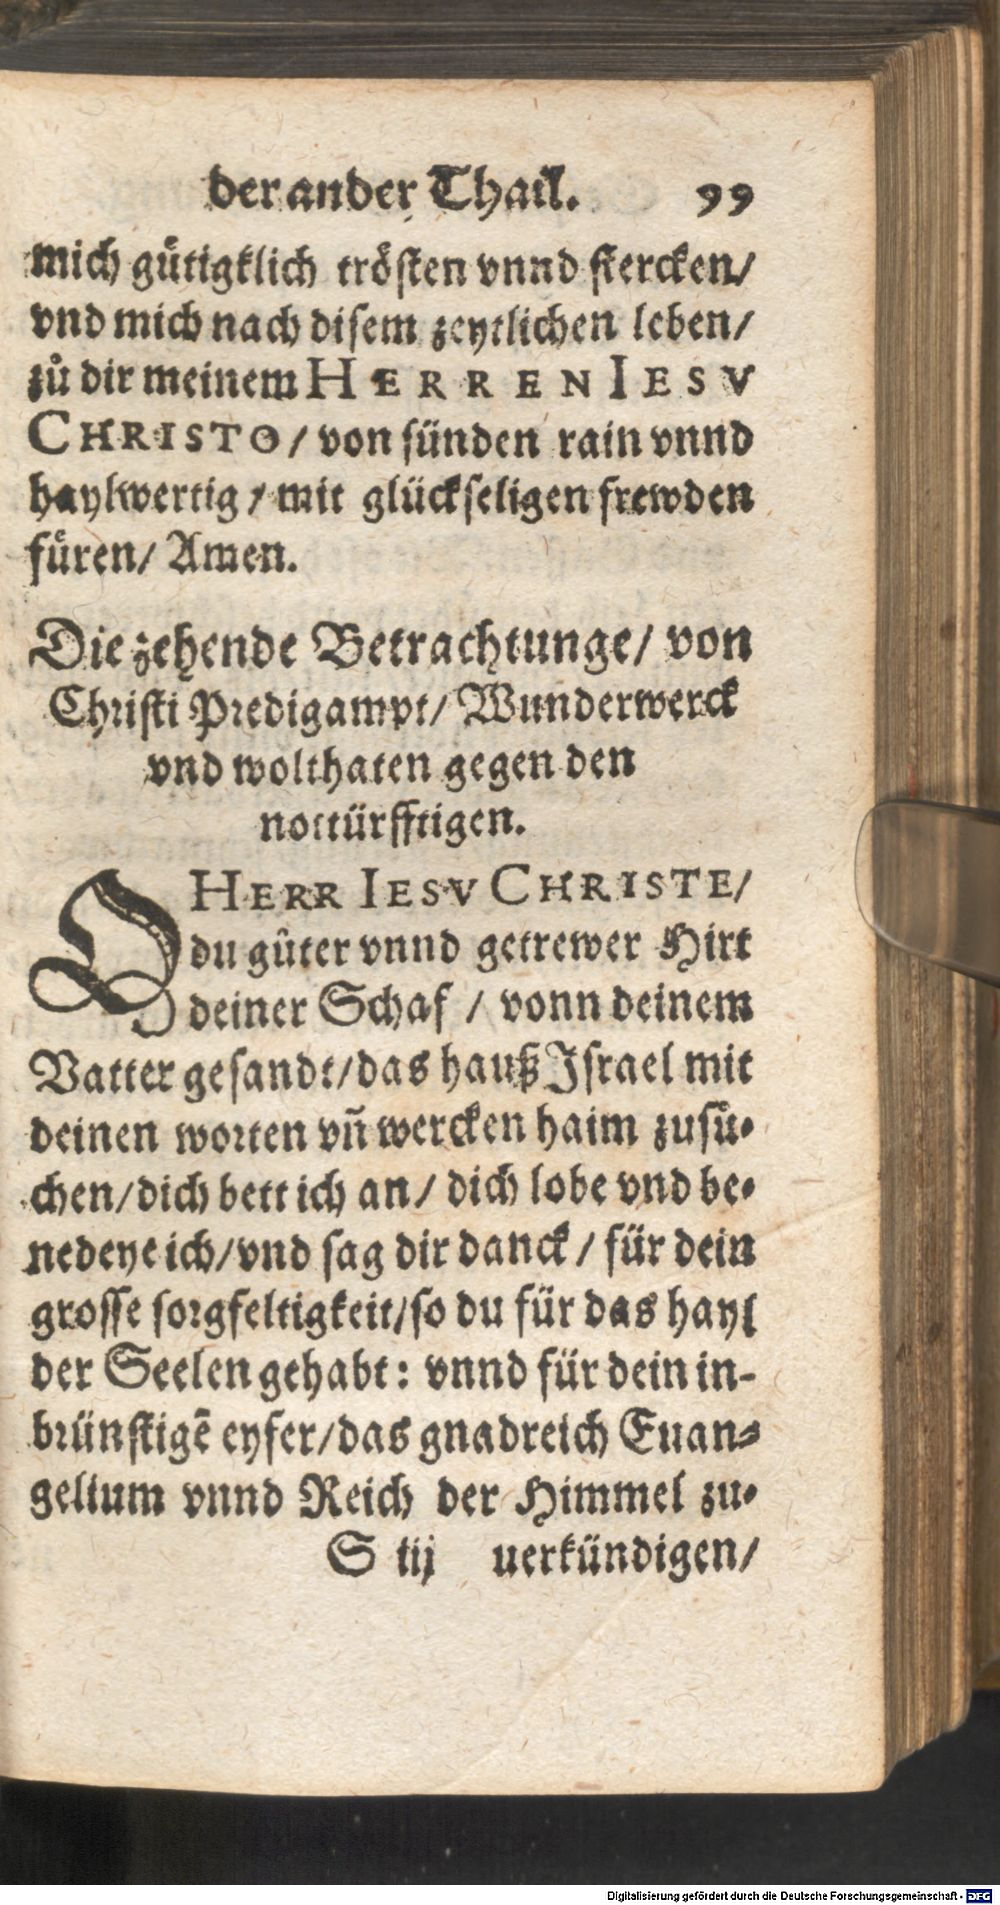 der ander Thail. 99
mich gütigklich trösten vnnd stercken/
vnd mich nach disem zeytlichen leben/
zů dir meinem HERREN IESV
CHRISTO/ von sünden rain vnnd
haylwertig/ mit glückseligen frewden
füren/ Amen.
Die zehende Betrachtunge/ von
Christi Predigampt/ Wunderwerck
vnd wolthaten gegen den
nottürfftigen.
O HERR IESV CHRISTE/
du gůter vnnd getrewer Hirt
deiner Schaf / vonn deinem
Vatter gesandt/das hauß Israel mit
deinen worten vñ wercken haim zusů-
chen/dich bett ich an/ dich lobe vnd be-
nedeye ich/vnd sag dir danck / für dein
grosse sorgfeltigkeit/so du für das hayl
der Seelen gehabt: vnnd für dein in-
brünstigē eyfer/das gnadreich Euan-
gelium vnnd Reich der Himmel zu-
S iij uerkündigen/
Digitalisierung gefördert durch die Deutsche Forschungsgemeinschaft - DFG